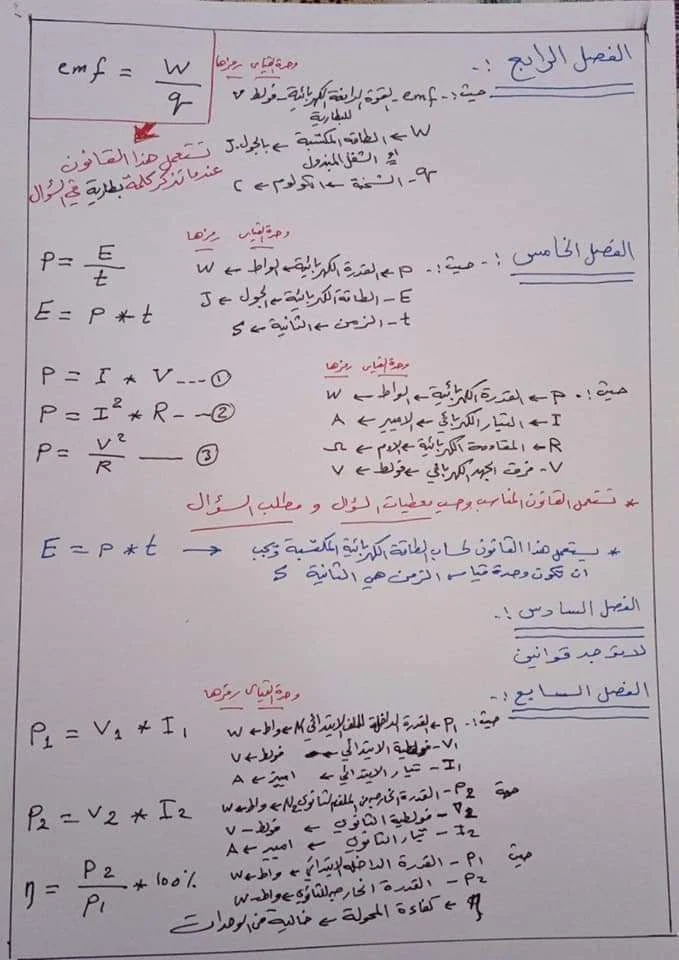 الفصل الرابع :-
emf = W / q
وحدة القياس رمزها
حيث :- emf - القوة الدافعة الكهربائية - فولط V
للبطارية
W ← الطاقة المكتسبة ← بالجول J
او الشغل المبذول
q - الشحنة ← الكولوم ← C
تستعمل هذا القانون
عندما تذكر كلمة بطارية في السؤال
الفصل الخامس :- حيث :-
وحدة القياس رمزها
P = E / t
E = P * t
P ← القدرة الكهربائية ← الواط ← W
E - الطاقة الكهربائية ← الجول ← J
t - الزمن ← الثانية ← S
P = I * V --- ①
P = I² * R --- ②
P = V² / R —— ③
وحدة القياس رمزها
حيث :- P ← القدرة الكهربائية ← الواط ← W
I ← التيار الكهربائي ← الامبير ← A
R ← المقاومة الكهربائية ← الاوم ← Ω
V - فرق الجهد الكهربائي ← فولط ← V
* تستعمل القانون المناسب وحسب معطيات السؤال و مطلب السؤال
E = P * t → * يستعمل هذا القانون لحساب الطاقة الكهربائية المكتسبة ويجب
ان تكون وحدة قياس الزمن هي الثانية S
الفصل السادس :-
لا يوجد قوانين
الفصل السابع :-
وحدة القياس رمزها
P₁ = V₁ * I₁
حيث :- P₁ ← القدرة الداخلة للملف الابتدائي ← واط ← W
V₁ - فولطية الابتدائي ← فولط ← V
I₁ - تيار الابتدائي ← امبير ← A
P₂ = V₂ * I₂
حيث P₂ - القدرة الخارجة من الملف الثانوي ← واط ← W
V₂ - فولطية الثانوي ← فولط - V
I₂ - تيار الثانوي ← امبير ← A
η = P₂ / P₁ * 100%
حيث P₁ - القدرة الداخلة للابتدائي ← واط ← W
P₂ - القدرة الخارجة للثانوي ← واط - W
η ← كفاءة المحولة ← خالية من الوحدات